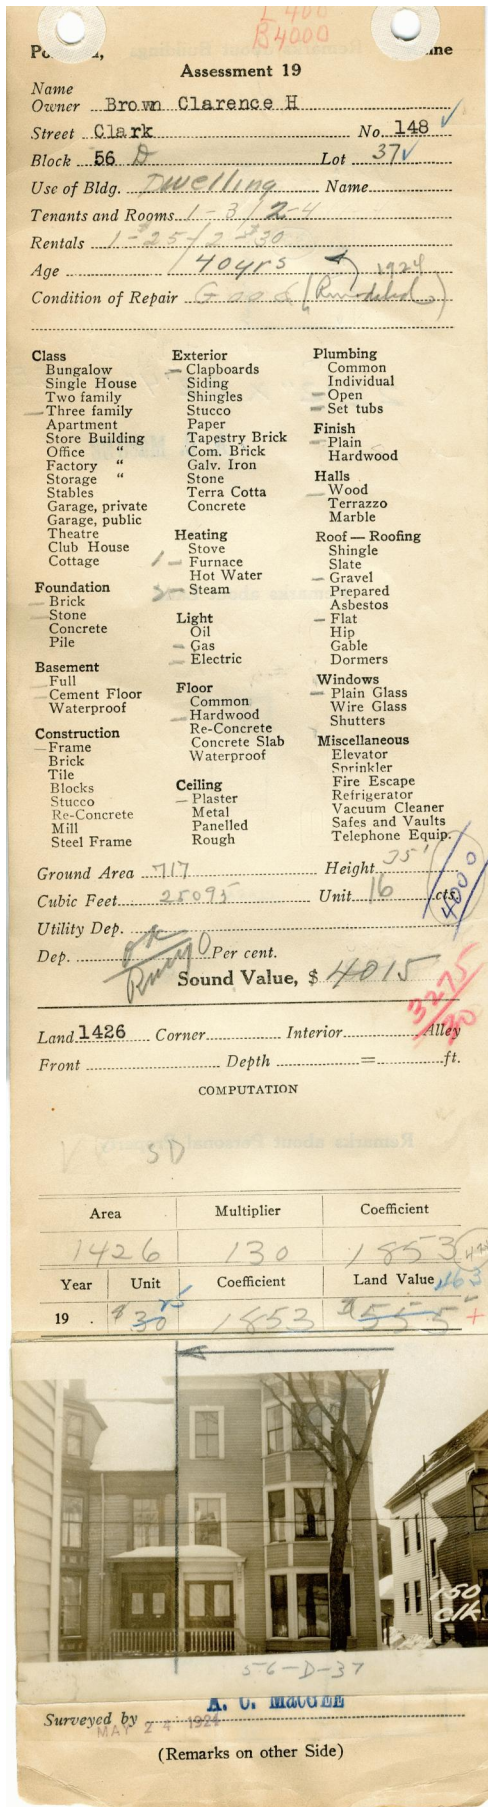 L 400
B 4000
Assessment 19
Name
Owner Brown Clarence H
Street Clark No. 148 ✓
Block 56 D Lot 37 ✓
Use of Bldg. Dwelling Name
Tenants and Rooms 1-3 / 2-4
Rentals 1-$25-/2-$30
Age 40yrs 1924
Condition of Repair Good (Remodeled)
Class
Bungalow
Single House
Two family
Three family
Apartment
Store Building
Office "
Factory "
Storage "
Stables
Garage, private
Garage, public
Theatre
Club House
Cottage
Foundation
Brick
Stone
Concrete
Pile
Basement
Full
Cement Floor
Waterproof
Construction
Frame
Brick
Tile
Blocks
Stucco
Re-Concrete
Mill
Steel Frame
Exterior
Clapboards
Siding
Shingles
Stucco
Paper
Tapestry Brick
Com. Brick
Galv. Iron
Stone
Terra Cotta
Concrete
Heating
Stove
1 Furnace
Hot Water
2 Steam
Light
Oil
Gas
Electric
Floor
Common
Hardwood
Re-Concrete
Concrete Slab
Waterproof
Ceiling
Plaster
Metal
Panelled
Rough
Plumbing
Common
Individual
Open
Set tubs
Finish
Plain
Hardwood
Halls
Wood
Terrazzo
Marble
Roof — Roofing
Shingle
Slate
Gravel
Prepared
Asbestos
Flat
Hip
Gable
Dormers
Windows
Plain Glass
Wire Glass
Shutters
Miscellaneous
Elevator
Sprinkler
Fire Escape
Refrigerator
Vacuum Cleaner
Safes and Vaults
Telephone Equip.
Ground Area 717 Height 35'
Cubic Feet 25095 Unit 16 cts. 4000
Utility Dep.
Dep. 0 Per cent.
Sound Value, $ 4015
3275
Land 1426 Corner Interior Alley
Front Depth = ft.
COMPUTATION
SD
Area Multiplier Coefficient
1426 130 1853
Year Unit Coefficient Land Value 463
19 . $30 25 1853 $555 +
150
Clk
56-D-37
A. C. MacGEE
Surveyed by MAY 24 1924
(Remarks on other Side)